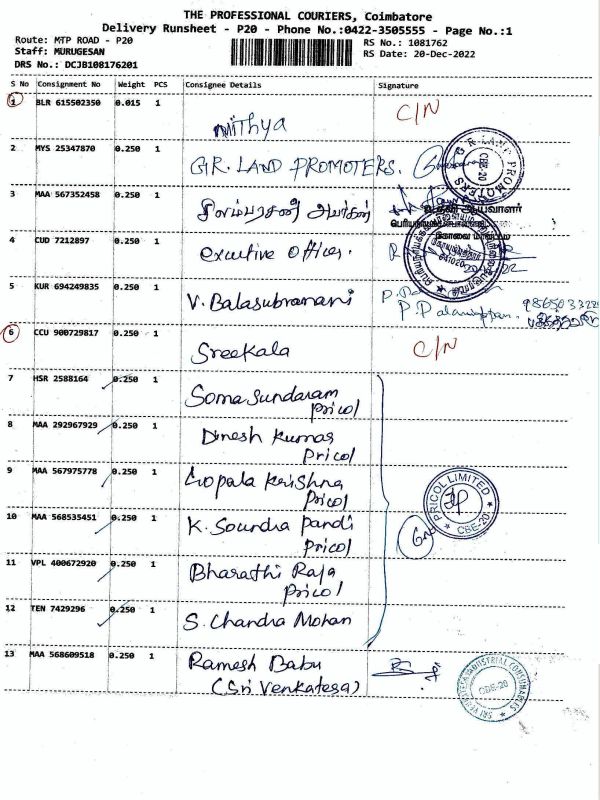 THE PROFESSIONAL COURIERS, Coimbatore
Delivery Runsheet - P20 - Phone No.:0422-3505555 - Page No.:1
Route: MTP ROAD - P20
RS No.: 1081762
Staff: MURUGESAN
RS Date: 20-Dec-2022
DRS No.: DCJB108176201
S No Consignment No Weight PCS Consignee Details Signature
1 BLR 615502350 0.015 1
Mithya C/N
2 MYS 25347870 0.250 1
G.R. LAND PROMOTERS. G.R. LAND PROMOTERS CBE-20
3 MAA 567352458 0.250 1
4 CUD 7212897 0.250 1
Executive Officer.
5 KUR 694249835 0.250 1
V. Balasubramani
6 CCU 900729817 0.250 1
Sreekala C/N
7 HSR 2588164 0.250 1
Soma Sundaram
Pricol
8 MAA 292967929 0.250 1
Dinesh Kumar
Pricol
9 MAA 567975778 0.250 1
Gopala Krishna
Pricol
PRICOL LIMITED CBE-20
10 MAA 568535451 0.250 1
K. Soundra Pandi
Pricol
11 VPL 400672920 0.250 1
Bharathi Raja
Pricol
12 TEN 7429296 0.250 1
S. Chandra Mohan
13 MAA 568609518 0.250 1
Ramesh Babu
(Sri Venkatesa)
SRI VENKATESA INDUSTRIAL CONSUMABLES CBE-20